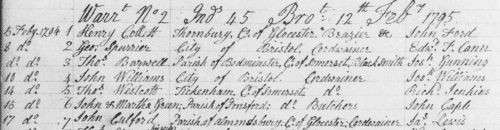 Warrt. No. 2 Ind 45 Brot. 12th Feby 1795
5 Feby. 1794 1 Henry Collett Thornbury, Co. of Glocester Brazier &c John Ford
8 do. 2 Geo. Spurrier City of Bristol Cordwainer Edwd. T. Cann
do do. 3 Thos. Barwell Parish of Bedminster, Co. of Somerset, Black Smith Jos. Gunning
10 do. 4 John Williams City of Bristol Cordwainer Jos. Williams
14 do 5 Thos. Westcott Tickenham, Co. of Somerset do. Richd. Jenkins
15 do 6 John & Martha Green, Parish of do. Butchers John Caple
17 do. 7 John Parish of Almondsbury, Co. of Glocester, Cordwainer Jas. Lewis